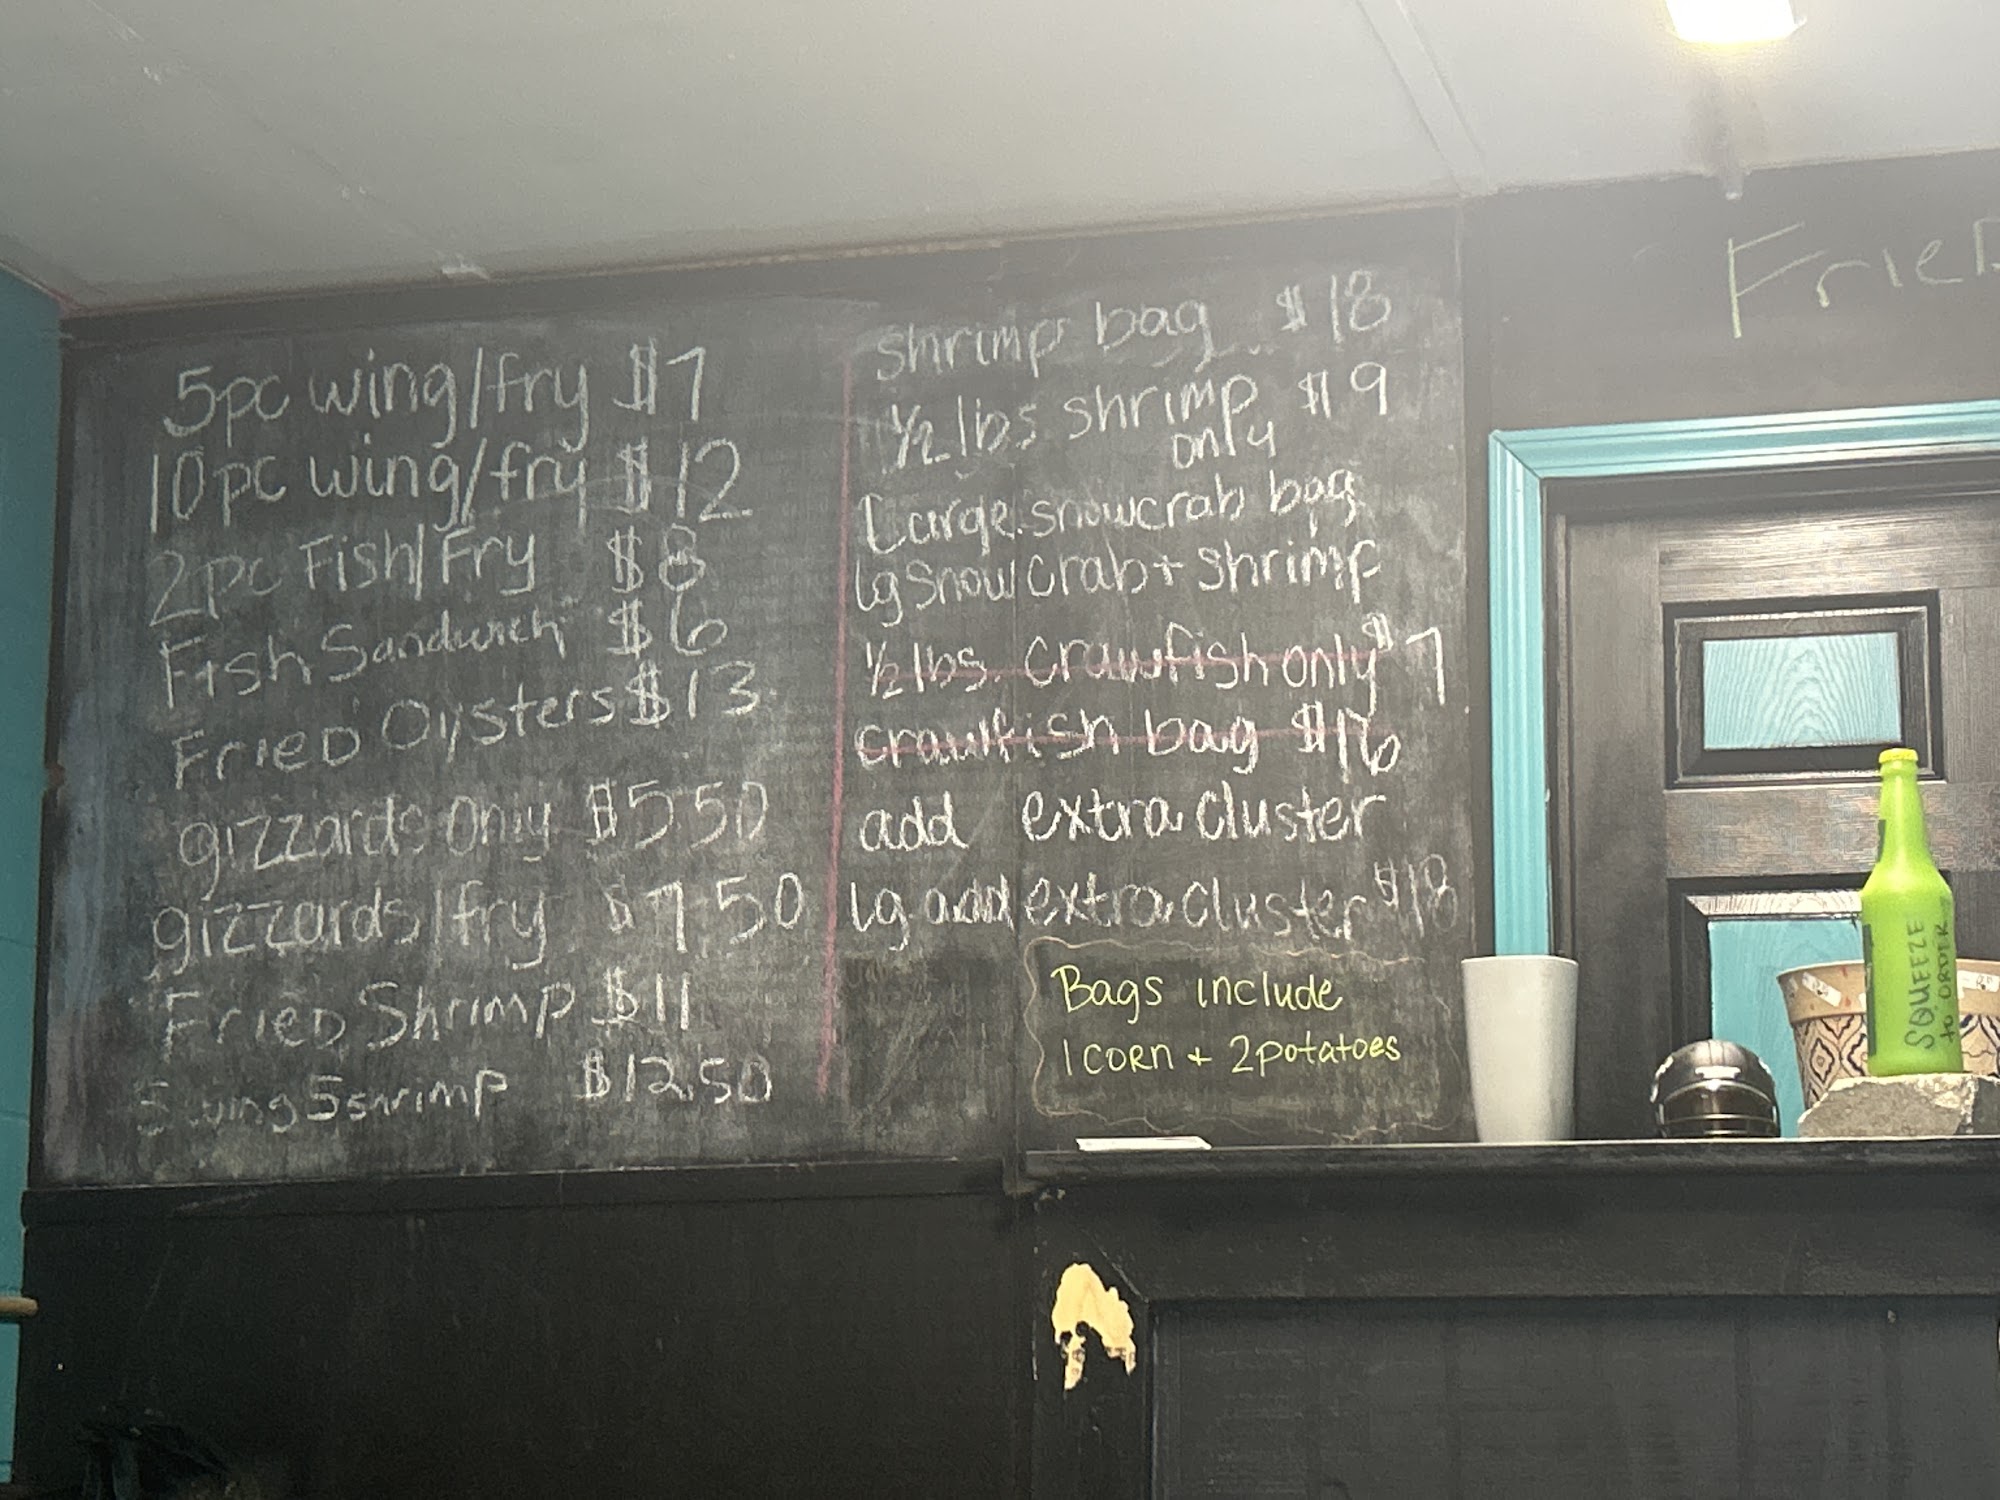 5pc wing/fry $7
10pc wing/fry $12
2pc Fish/Fry $8
Fish Sandwich $6
FrieD Oysters $13
gizzards Only $5.50
gizzards/fry $7.50
FrieD Shrimp $11
5 wing 5 shrimp $12.50
shrimp bag $18
1/2 lbs shrimp $9
only
Large snowcrab bag
lg Snow Crab + Shrimp
1/2 lbs. Crawfish only $7
crawfish bag $16
add extra cluster
lg add extra cluster $18
Bags include
1 CORN + 2 potatoes
FrieD
SQUEEZE
to ORDER